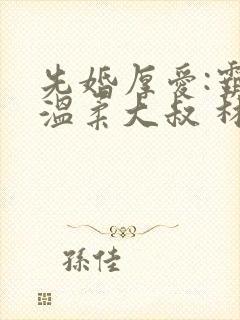 先婚厚爱:
温柔大叔
孫佳